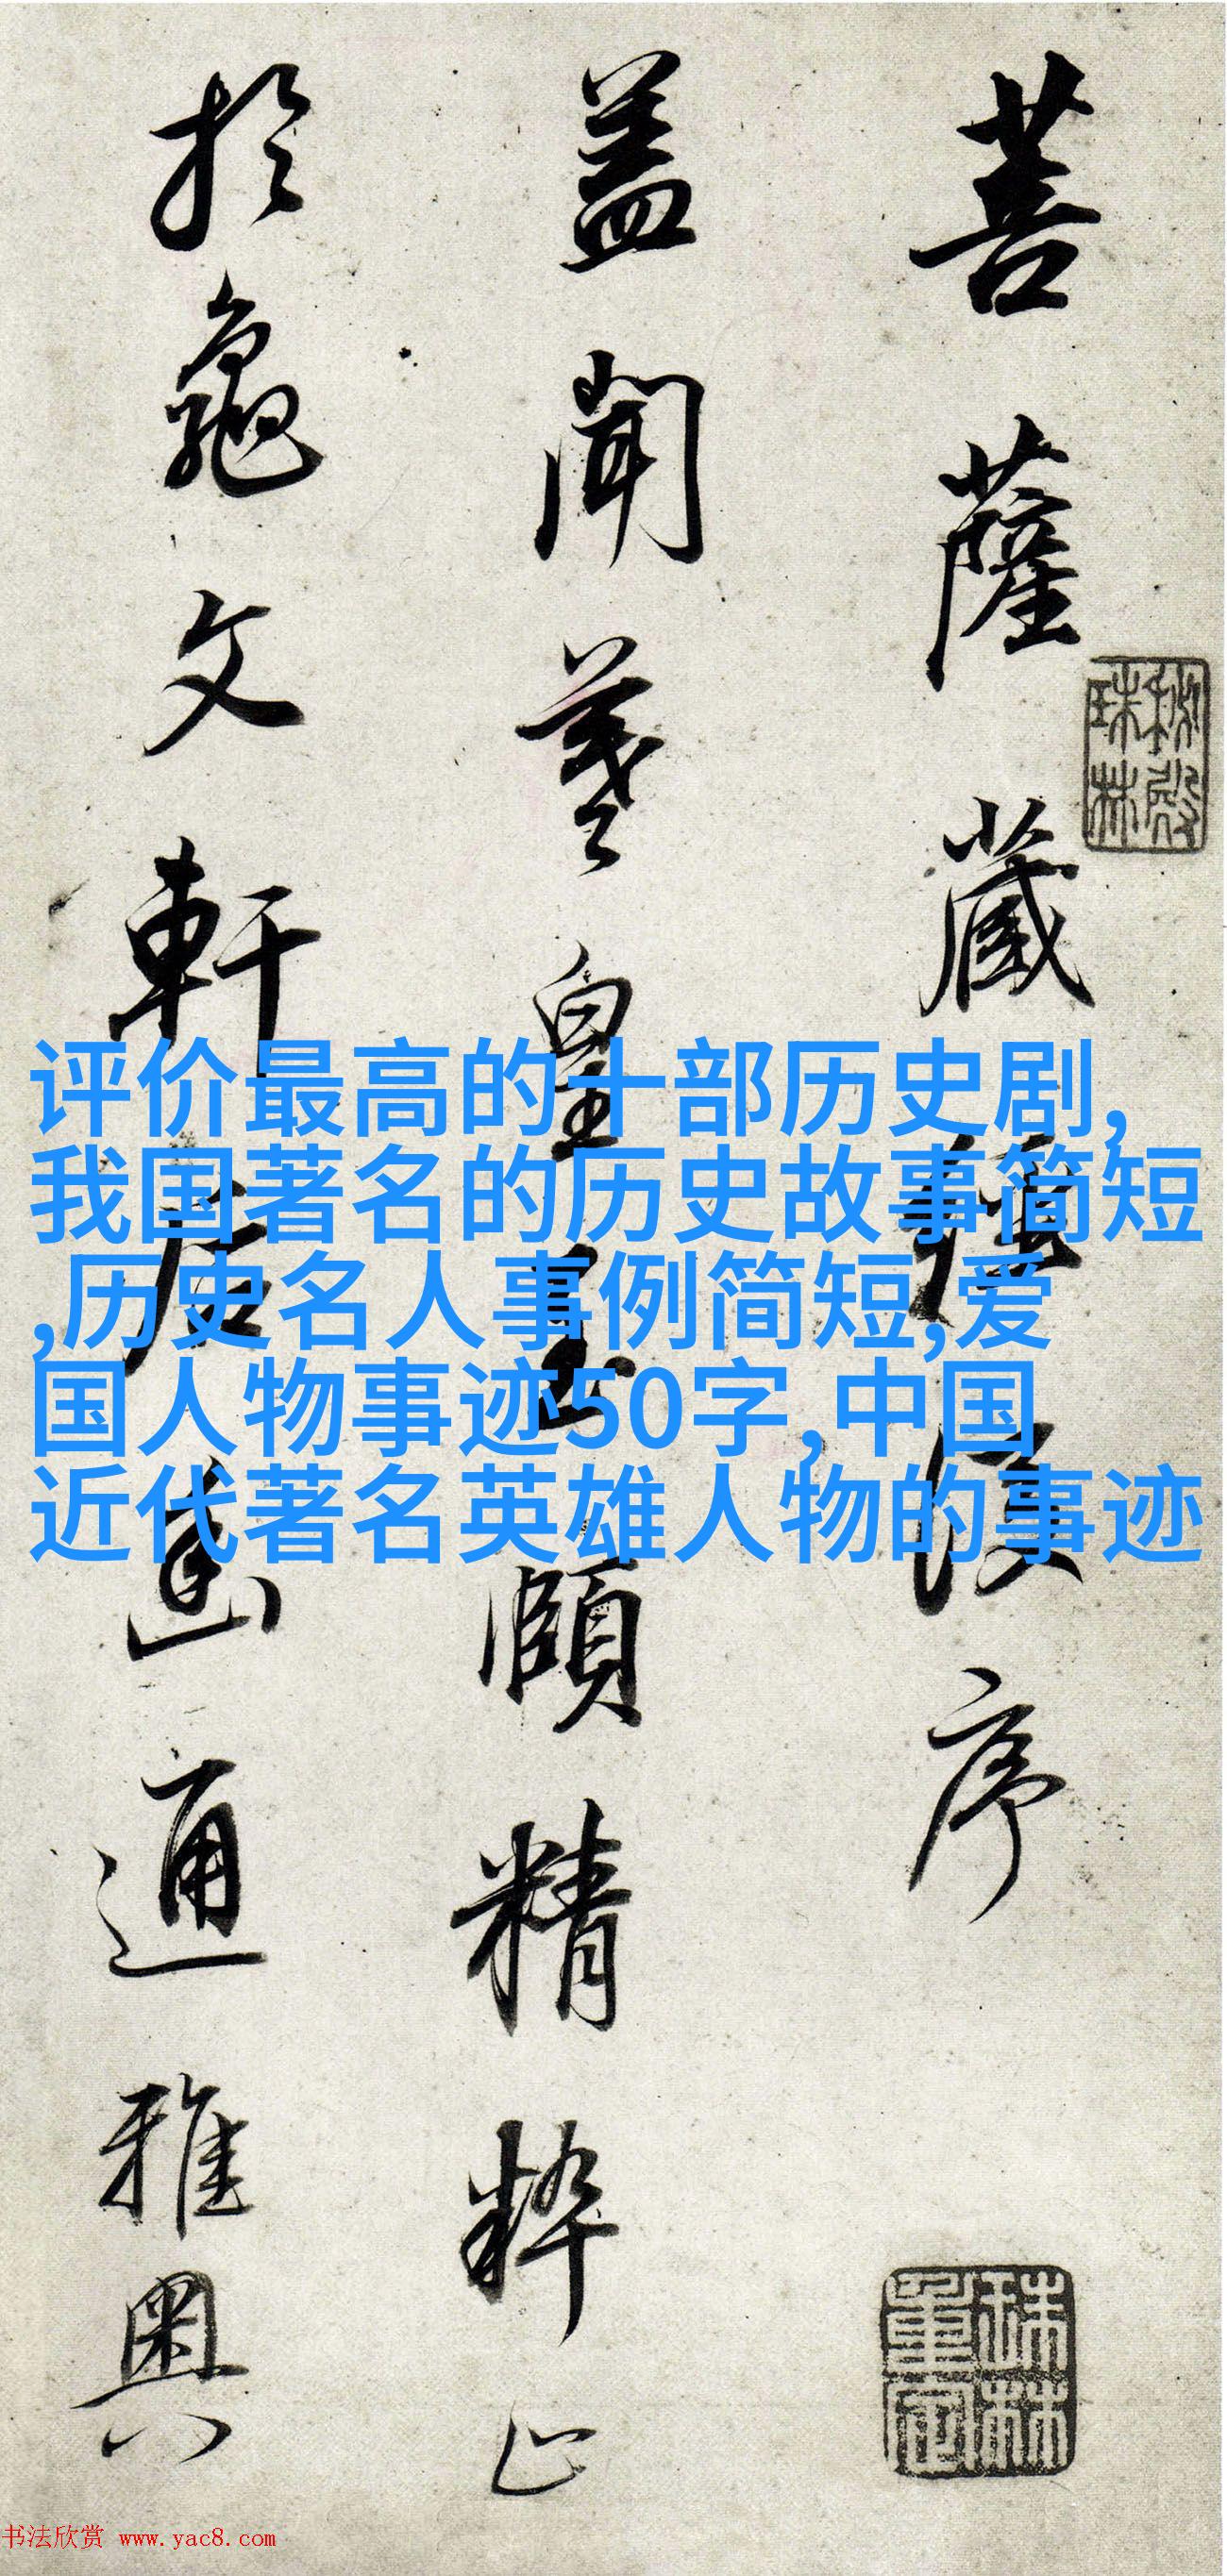 菩薩藏經後序
盖聞羲皇至賾精粹止
於龜文軒后幽通雅奧
秘殿
珠林
评价最高的十部历史剧,
我国著名的历史故事简短
,历史名人事例简短,爱
国人物事迹50字,中国
近代著名英雄人物的事迹
珠林
重定
书法欣赏 www.yac8.com